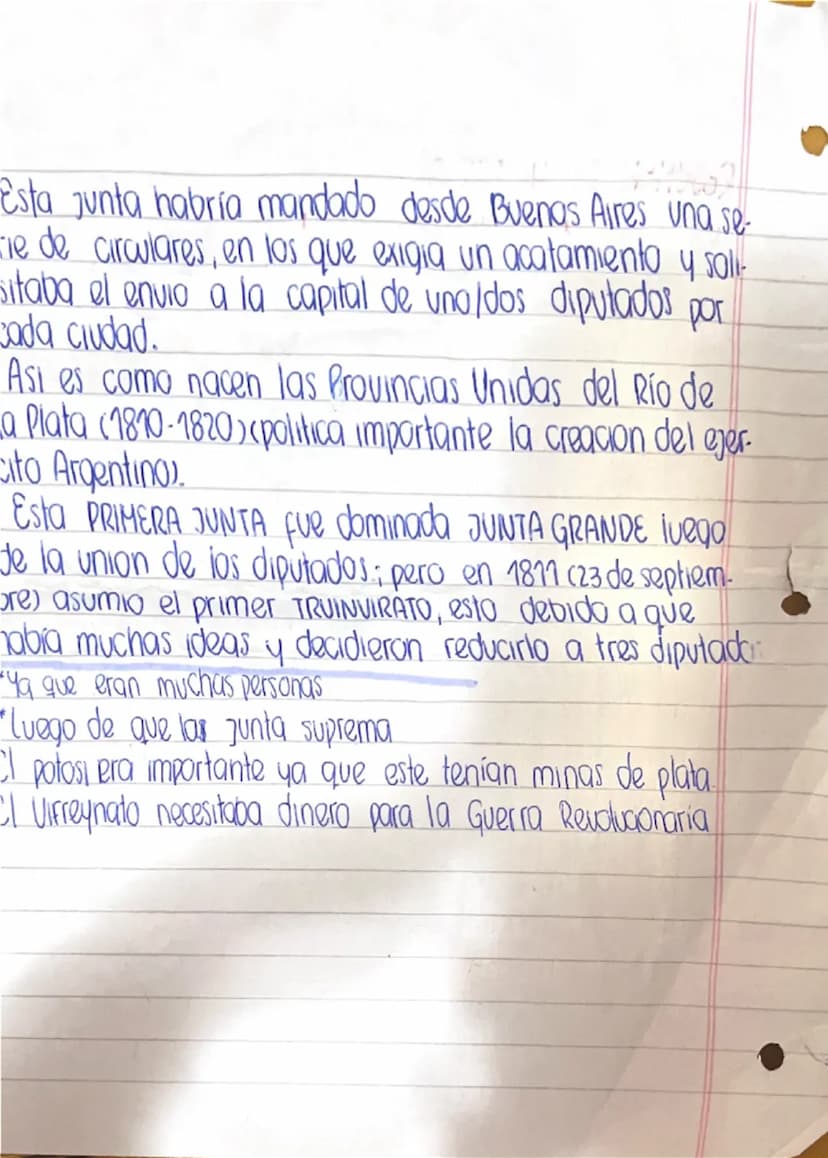 Esta junta habría mandado desde Buenos Aires una se-
rie de circulares, en los que exigia un acatamiento y soli-
sitaba el envio a la capital de uno/dos diputados por
cada ciudad.
Asi es como nacen las Provincias Unidas del Río de
la Plata (1810-1820) (politica importante la creacion del ejer-
cito Argentino).
Esta PRIMERA JUNTA fue dominada JUNTA GRANDE luego
de la union de los diputados; pero en 1811 (23 de septiem-
bre) asumio el primer TRUINVIRATO, esto debido a que
habia muchas ideas y decidieron reducirlo a tres diputado
*Ya que eran muchas personas
*Luego de que las junta suprema
El potosi era importante ya que este tenían minas de plata.
El Virreynato necesitaba dinero para la Guerra Revolucionaria